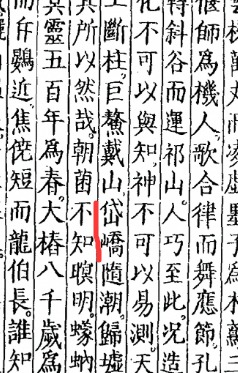 偃師爲機人。歌合律而舞應節。孔
特斜谷而運祁山。人巧至此。况造
化不可以與知。神不可以易測。天
工斷柱。巨鰲戴山。岱嶠隨潮。歸墟
其所以然哉。朝菌不知暝明。蠓蚋
冥靈五百年爲春。大椿八千歲爲
而斥鷃近。焦僥短而龍伯長。誰知